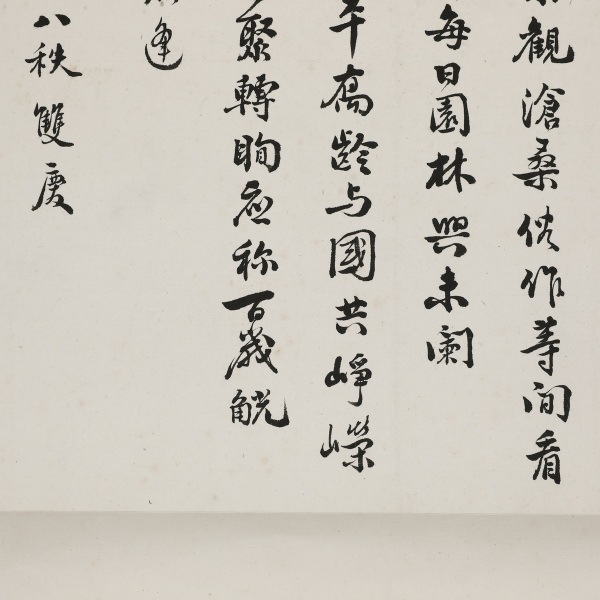 觀滄桑俗作等间看
每日園林興未闌
年高齡与國共崢嶸
聚轉眴应称百歲觥
逢
八秩雙慶